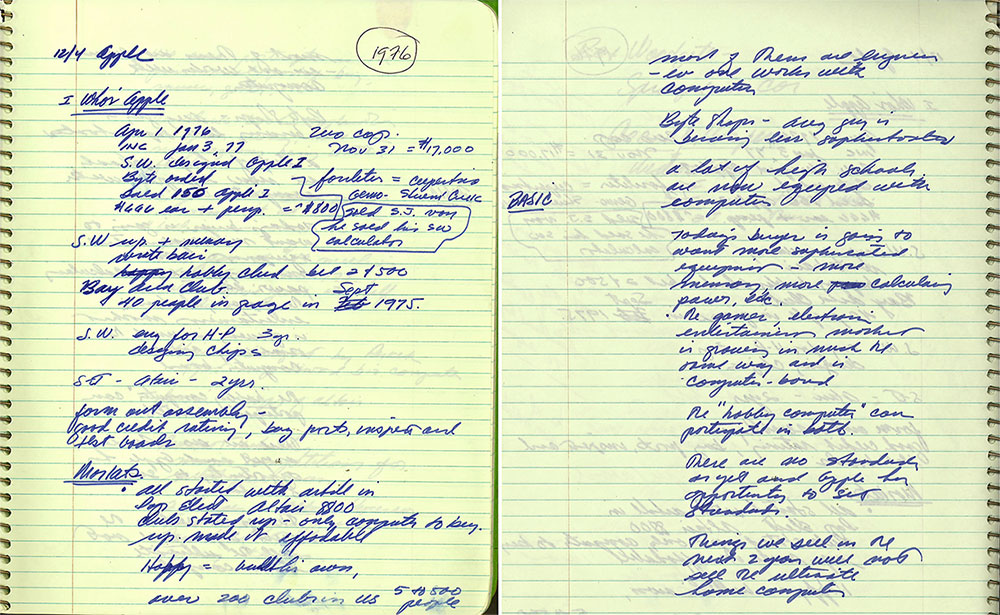 12/4 Apple
1976
I Who's Apple
Apr 1 1976
INC Jan 3, 77
S.W. designed Apple I
Byte orded
150 Apple I
= $800
200 cop.
Nov 31 = $17,000
= Cupertino
sold S.J. van
he sold his SW
calculator
S.W. up. + memory
write basic
hobby club bet 2 & 500
Bay Area Club. Sept
40 people in garage in 1975.
S.W. eng for H-P 3 yr.
desging chips
- Atari - 2 yrs.
form out assembly -
good credit rating, buy parts, inspect and
test boards
Markets.
• all started with article in
Pop Elect Altair 8800
clubs started up - only computer to buy.
up. made it affordable
Happy = his own,
over 200 clubs in US 5 to 500
people
most of them are engineers
- or one works with
computers
Byte Shops - any guy is
less sophisticated
a lot of high schools
are now equiped with
BASIC
computers
Today's buyer is going to
want more sophisticated
equipment - more
memory, more calculating
power, etc.
• The gamer, electronic
entertainment market
is growing in much the
same way and is
computer-bound
The "hobby computer" can
partipate in both.
There are no standards
as yet and Apple has
opportunity to set
standards.
Things we sell in the
next 2 years will not
sell the ultimate
home computer